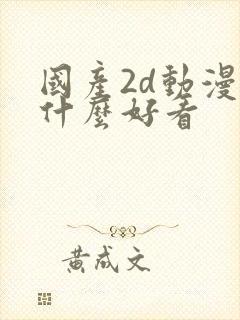 國產2d動漫
什麼好看
黃成文